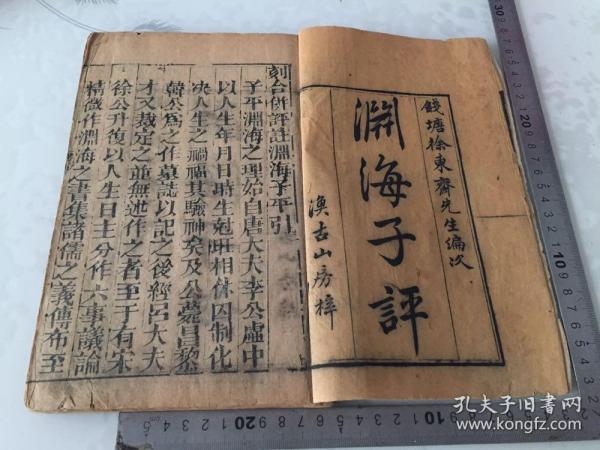 錢塘徐東齋先生編次
淵海子評
漢古山房梓
刻合併評註淵海子平引
子平淵海之理始自唐大夫李公虛中
以人生年月日時生尅旺相休囚制化
决人生之禍福其驗神矣及公薨昌黎
韓公爲之作墓誌以記之後經呂大夫
才又裁定之並無述作之者至于有宋
徐公升復以人生日主分作六事議論
精微作淵海之書集諸儒之義傳布至
20
10
孔夫子旧书网
www.kongfz.com